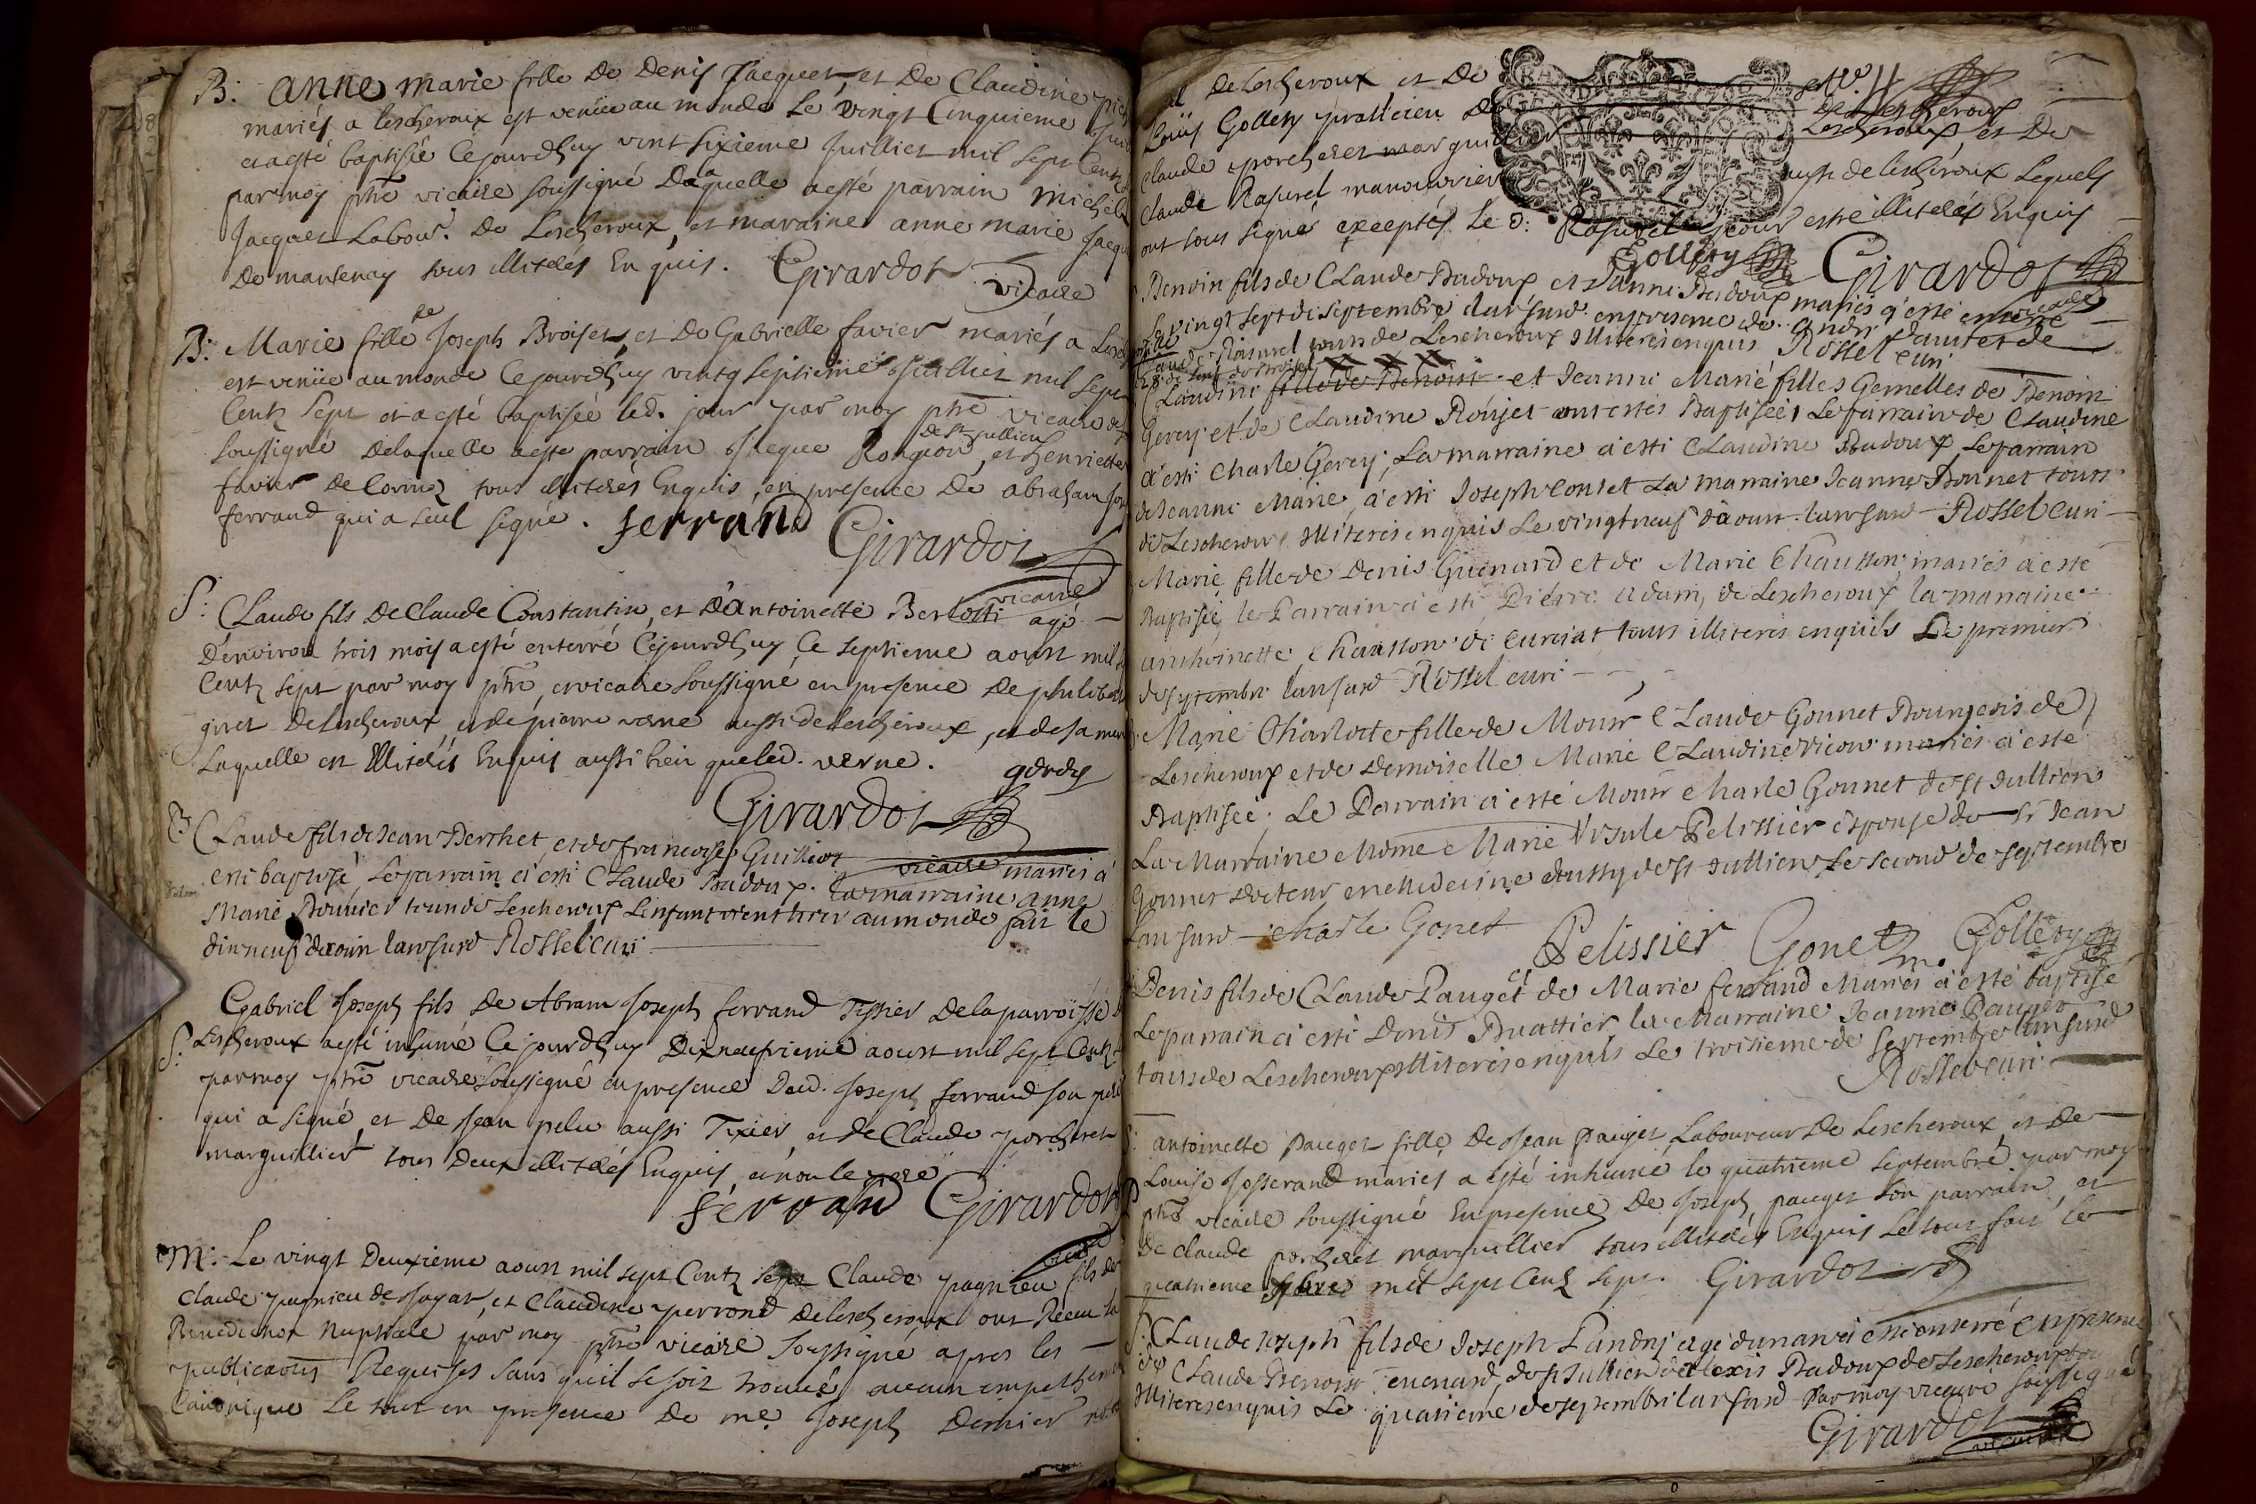 B. anne marie fille De Denis Jacquet, et De Claudine
mariés a lescheroux est venüe au monde Le vingt Cinquieme
et a esté baptisée Cejourdhuy vint sixieme Juilliet mil sept Centz
par moy ptre vicaire soussigné De laquelle a esté parrain michel
Jacquet Labour. De Lescheroux, et maraine anne marie
De mantenay tous illiterés Enquis. Girardot
vicaire
B. Marie fille de Joseph Broiset, et De Gabrielle favier mariés a
est venüe au monde Cejourdhuy vintg septieme Juilliet mil sept
Centz sept et a esté baptisée led. jour par moy ptre vicaire
soussigné Delaquelle a esté parrain Jaque Rongeon de st jullien, et henriette
favier De Cormoz tous illiterés Enquis, en presence De abraham
ferrand qui a seul signé. ferrand Girardot
vicaire
S: Claude fils De Claude Constantin, et D'antoinette Berlotti agé
D'environ trois mois a esté enterré Cejourdhuy Ce septieme aoust mil
Centz sept par moy ptre et vicaire soussigné en presence De philibert
De lescheroux, et de pierre verne aussi de lescheroux, et de sa mere
Laquelle est illiterée Enquis aussi bien que led. verne.
Girardot
vicaire
B. Claude fils de Jean Berthet et de francoise Guilliot mariés a
esté baptisé Le parrain a esté Claude Badoux. La marraine anne
Marie Bouvier tous de Lescheroux L'enfant vient d'estre au monde fait le
dixneuf d'aoust l'an susd Rossel curé
Gabriel Joseph fils De Abram Joseph ferrand Tissier De la parroisse
S: Lescheroux a esté inhumé Cejourdhuy Dixneufvieme aoust mil sept Centz
par moy ptre vicaire soussigné en presence Dud. Joseph ferrand son
qui a signé, et De Jean pelu aussi Tixier et de Claude porcheret
marguillier tous Deux illiterés Enquis, et non le pere
ferrand Girardot
M: Le vingt Deuxieme aoust mil sept Centz sept Claude pagnieu fils de
Claude pagnieu de Jayat, et Claudine perrond De lescheroux ont Receu la
Benediction Nuptiale par moy ptre vicaire soussigné, apres les
publications Requises sans quil se soit trouvé aucun empeshement
Canonique Le tout en presence De me. Joseph Dernier
De Lescheroux, et De
Louis Gollety pratticien De Lescheroux, et De
Claude porcheret marguillier
Claude Rasurel manouvrier aussi de lescheroux Lequels
ont tous signé exceptés Le d. Rasurel pour estre illiterés Enquis
Gollety Girardot
Benoin fils de Claude Badoux et d'anne Badoux mariés a esté enterré
Le vingt sept de septembre l'an susd. en presence de
Rasurel tous de Lescheroux illiterés enquis Rossel curé
Claudine fille de Benoist et Jeanne Marie filles Gemelles de Benoin
Gerey et de Claudine Rongiet ont estés Baptisées Le parrain de Claudine
a esté Charle Gerey, La marraine a esté Claudine Badoux, Le parrain
de Jeanne Marie a esté Joseph Contet La marraine Jeanne Bonnet tous
de Lescheroux illiterés enquis Le vingt neuf d'aoust l'an susd Rossel curé
Marie fille de Denis Guenard et de Marie Chausson mariés a esté
Baptisée le Parrain a esté Pierre Adam, de Lescheroux la marraine
anthoinette Chausson de Curciat tous illiterés enquis Le premier
de septembre l'an susd Rossel curé
Marie Charlotte fille de Monsr Claude Gonnet Bourgeois de
Lescheroux et de Demoiselle Marie Claudine Vicon mariés a esté
Baptisée. Le Parrain a esté Monsr Charle Gonnet de St Jullien
La Marraine Mdme Marie Ursule Pelissier espouse du Sr Jean
Gonnet Docteur en Medecine aussy de St Jullien Le second de septembre
L'an susd charle Gonet Pelissier Gonet Gollety
Denis fils de Claude Pauget et de Marie ferrand Mariés a esté baptisé
Le parrain a esté Denis Buattier la Marraine Jeanne Pauget
tous de Lescheroux illiterés enquis Le troisieme de septembre l'an susd
Rossel curé
S: antoinette pauget fille De Jean pauget Laboureur De Lescheroux et De
Louise Josserand mariés a esté inhumé le quatrieme septembre par moy
ptre vicaire soussigné En presence De Joseph pauget son parrain, et
De Claude porcheret marguillier tous illiterés Enquis Le tout fait le
quatrieme 7bre mil sept Centz sept. Girardot
S: Claude Joseph fils de Joseph Landry agé d'un an a esté enterré en presence
de Claude Benoist Guenard, de st Jullien et Alexis Badoux de Lescheroux
illiterés enquis Le quatrieme de septembre l'an susd Par moy vicaire soussigné
Girardot
vicaire